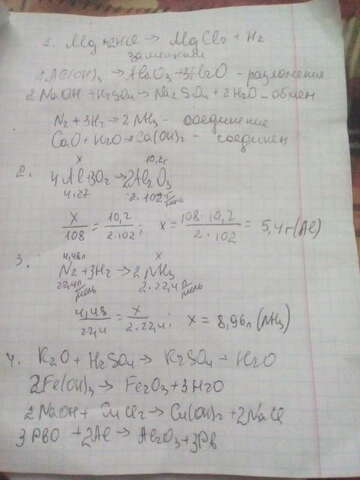 1. Mg + 2HCl → MgCl2 + H2
замещения
2Al(OH)3 → Al2O3 + 3H2O - разложения
2NaOH + H2SO4 → Na2SO4 + 2H2O - обмен
N2 + 3H2 → 2NH3 - соединение
CaO + H2O → Ca(OH)2 - соединен
2. x 10,2г
4Al+3O2 → 2Al2O3
4·27 2·102 г/моль
x/108 = 10,2/2·102 ; x = 108·10,2/2·102 = 5,4г (Al)
3. 4,48л x
N2 + 3H2 → 2NH3
22,4 л/моль 2·22,4 л/моль
4,48/22,4 = x/2·22,4 ; x = 8,96л (NH3)
4. K2O + H2SO4 → K2SO4 + H2O
2Fe(OH)3 → Fe2O3 + 3H2O
2NaOH + CuCl2 → Cu(OH)2 + 2NaCl
3PbO + 2Al → Al2O3 + 3Pb